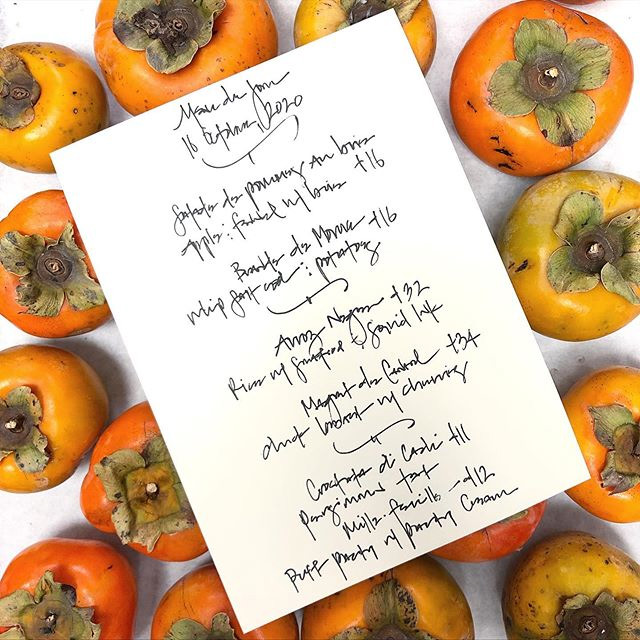 Menu du Jour
16 October, 2020
Salade de pommes au brie
Apple & fennel w/ brie +16
Brandade de Morue +16
whip salt cod & potatoes
Arroz Negra +32
Rice w/ seafood & squid ink
Magret de Canard +34
duck breast w/
Crostata di Cachi +11
persimmon tart
Mille feuille +12
Puff pastry w/ pastry cream